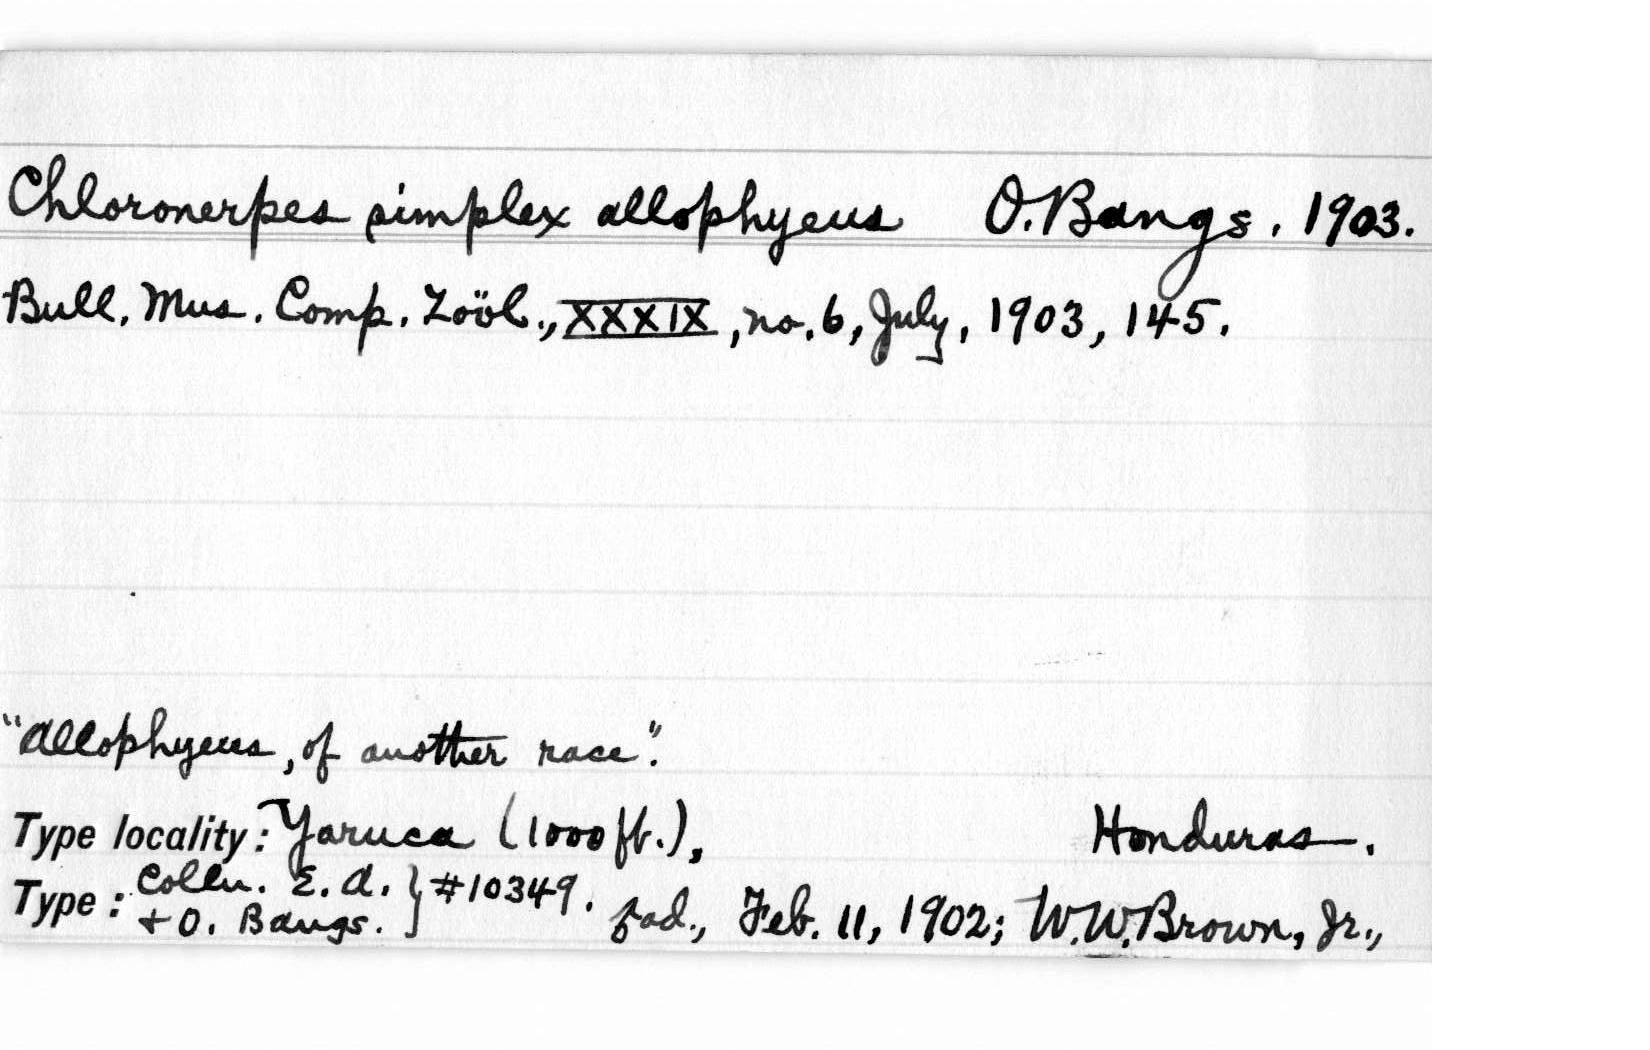 Chloronerpes simplex allophyeus O. Bangs. 1903.
Bull. Mus. Comp. Zoöl., XXXIX, no. 6, July, 1903, 145.
"allophyeus, of another race".
Type locality: Yaruca (1000 ft.), Honduras.
Type: Colln. E. A. & O. Bangs. } #10349. f ad., Feb. 11, 1902; W. W. Brown, Jr.,